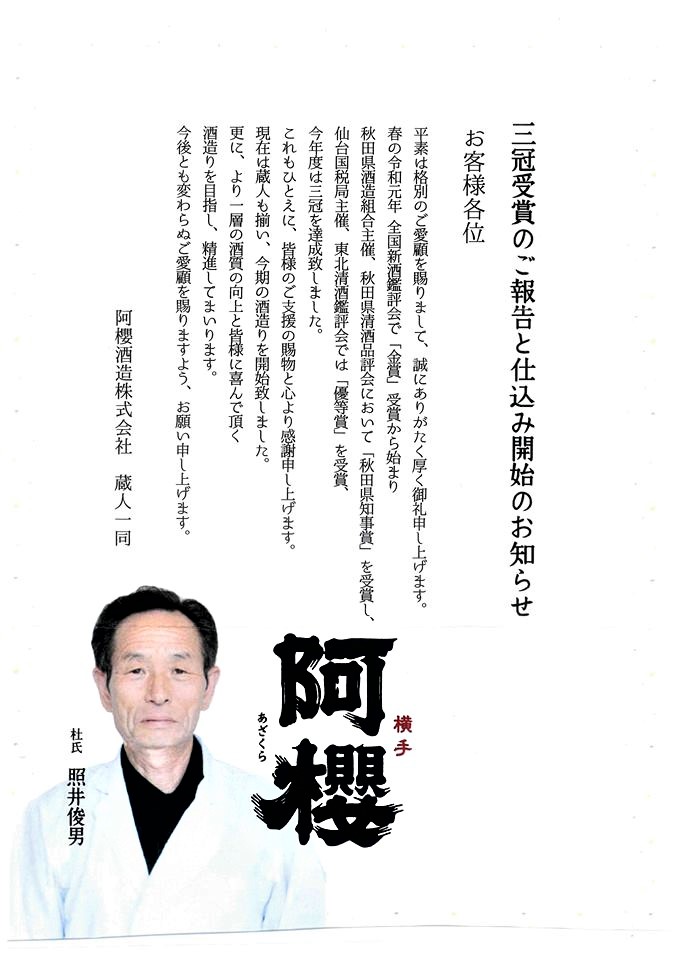 三冠受賞のご報告と仕込み開始のお知らせ
お客様各位
平素は格別のご愛顧を賜りまして、誠にありがたく厚く御礼申し上げます。
春の令和元年 全国新酒鑑評会で「金賞」受賞から始まり
秋田県酒造組合主催、秋田県清酒品評会において「秋田県知事賞」を受賞し、
仙台国税局主催、東北清酒鑑評会では「優等賞」を受賞、
今年度は三冠を達成致しました。
これもひとえに、皆様のご支援の賜物と心より感謝申し上げます。
現在は蔵人も揃い、今期の酒造りを開始致しました。
更に、より一層の酒質の向上と皆様に喜んで頂く
酒造りを目指し、精進してまいります。
今後とも変わらぬご愛顧を賜りますよう、お願い申し上げます。
阿櫻酒造株式会社 蔵人一同
横手
阿櫻
あざくら
杜氏 照井俊男